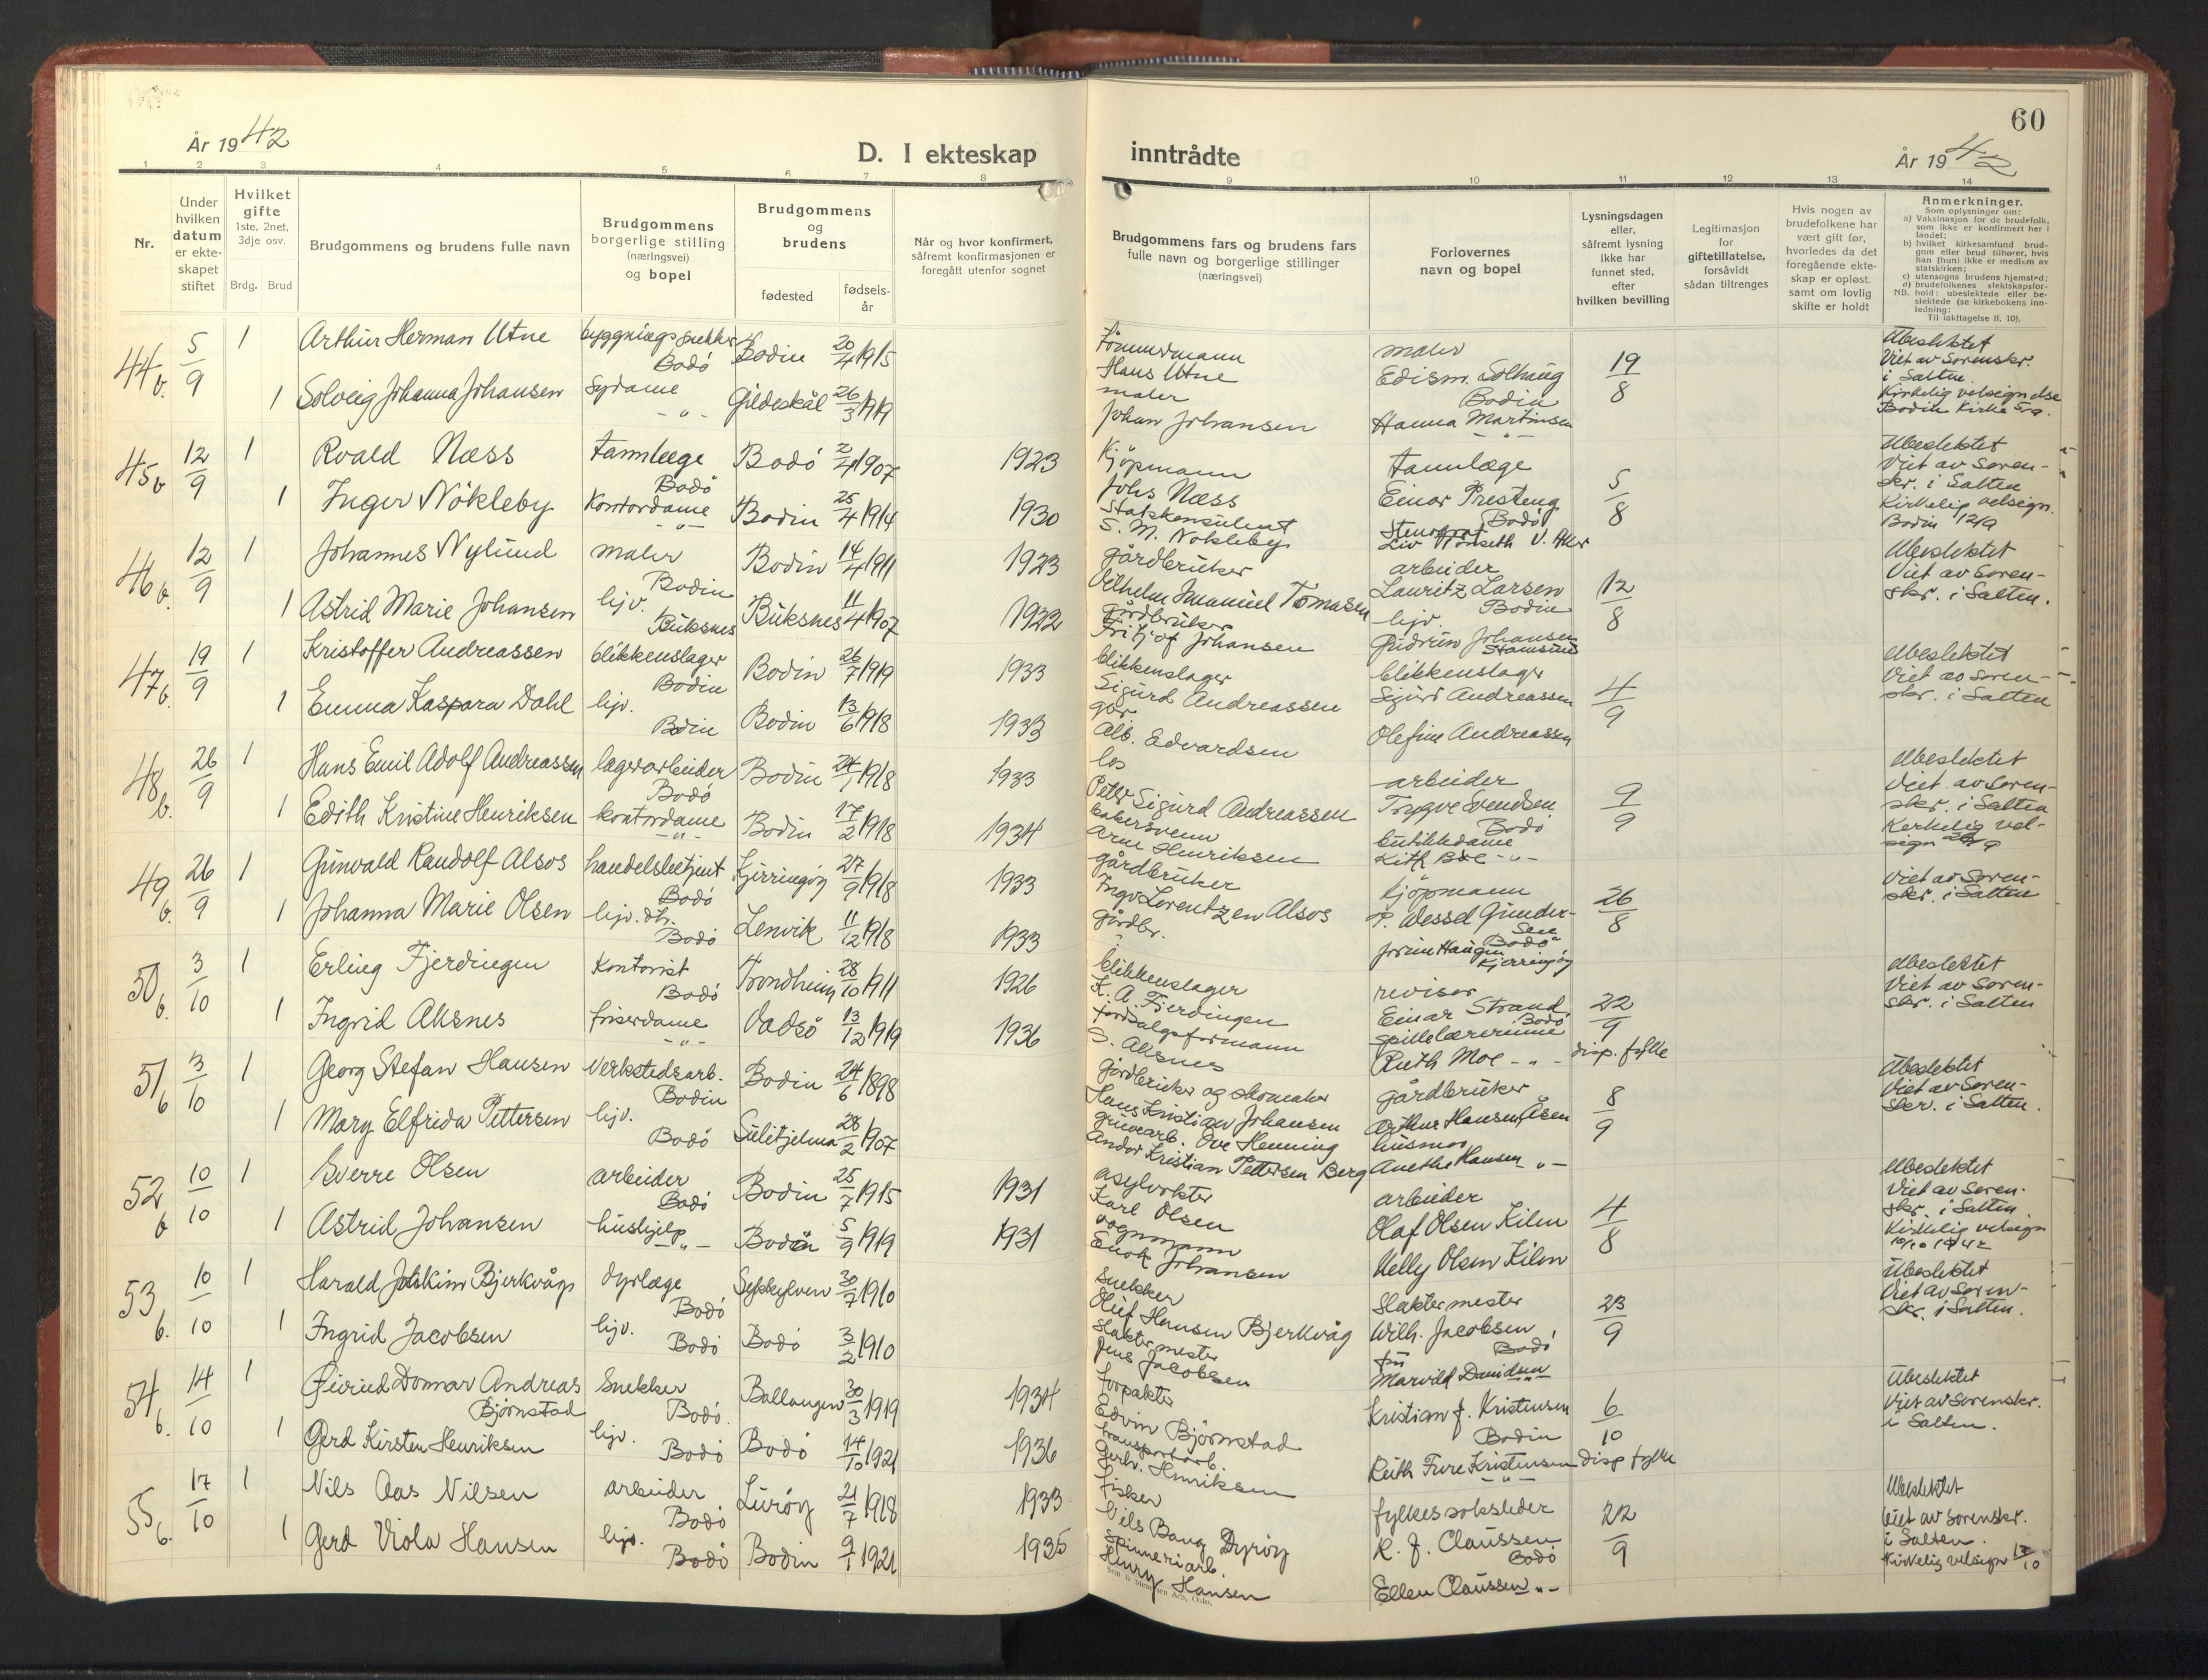 År 1942
D. I ekteskap
1 2 3 4 5 6 7 8
Nr.
Under hvilken datum er ekteskapet stiftet
Hvilket gifte 1ste, 2net, 3dje osv.
Brdg. Brud
Brudgommens og brudens fulle navn
Brudgommens borgerlige stilling (næringsvei) og bopel
Brudgommens og brudens
fødested
fødselsår
Når og hvor konfirmert, såfremt konfirmasjonen er foregått utenfor sognet
44 b. 5/9 1 Arthur Herman Utne byggningssnekker Bodö Bodin 20/4 1915
1 Solveig Johanna Johansen Sydame -"- Gildeskål 26/3 1919
45 b 12/9 1 Roald Næss tannlæge Bodö Bodö 2/4 1907 1923
1 Inger Nökleby Kontordame -"- Bodin 25/4 1914 1930
46 b. 12/9 1 Johannes Nylund maler Bodin Bodin 14/4 1911 1923
1 Astrid Marie Johansen hjv. Buksnes Buksnes 11/4 1907 1922
47 b. 19/9 1 Kristoffer Andreassen blikkenslager Bodin Bodin 26/7 1919 1933
1 Emma Kaspara Dahl hjv. Bodin Bodin 13/6 1918 1933
48 b. 26/9 1 Hans Emil Adolf Andreassen lagerarbeider Bodö Bodin 24/1 1918 1933
1 Edith Kristine Henriksen kontordame -"- Bodin 17/2 1918 1934
49 b. 26/9 1 Gunvald Randolf Alsos handelsbetjent Bodö Kjerringöy 27/9 1918 1933
1 Johanna Marie Olsen hjv. dtr. Bodö Lenvik 11/12 1918 1933
50 b. 3/10 1 Erling Fjerdingen Kontorist Bodö Trondheim 28/10 1911 1926
1 Ingrid Aksnes friserdame -"- Vadsö 13/12 1919 1936
51 b 3/10 1 Georg Stefan Hansen Verkstedsarb. Bodin Bodin 24/6 1898
1 Mary Elfrida Pettersen hjv. Bodö Sulitjelma 28/2 1907
52 b 10/10 1 Sverre Olsen arbeider Bodö Bodin 25/7 1915 1931
1 Astrid Johansen hushjelp -"- Bodin 5/9 1919 1931
53 b. 10/10 1 Harald Joakim Bjerkvåg dyrlæge Bodö Sykkylven 30/7 1910
1 Ingrid Jacobsen hjv. Bodö Bodö 3/2 1910
54 b. 14/10 1 Øivind Donnar Andreas Bjørnstad Snekker Bodö. Ballangen 30/3 1919 1934
1 Gerd Kirsten Henriksen hjv. Bodö Bodö 14/10 1921 1936
55 b. 17/10 1 Nils Aas Nilsen arbeider Bodö Luröy 21/7 1918 1933
1 Gerd Viola Hansen hjv. Bodö Bodin 9/1 1921 1935
60
inntrådte
År 1942
9 10 11 12 13 14
Brudgommens fars og brudens fars fulle navn og borgerlige stillinger (næringsvei)
Forlovernes navn og bopel
Lysningsdagen eller, såfremt lysning ikke har funnet sted, efter hvilken bevilling
Legitimasjon for giftetillatelse, forsåvidt sådan tiltrenges
Hvis nogen av brudefolkene har vært gift før, hvorledes da det foregående ekteskap er opløst. samt om lovlig skifte er holdt
Anmerkninger.
Som oplysninger om:
a) Vaksinasjon for de brudefolk, som ikke er konfirmert her i landet;
b) hvilket kirkesamfund brudgom eller brud tilhører, hvis han (hun) ikke er medlem av statskirken;
c) utensogns brudens hjemsted;
d) brudefolkenes slektskapsforhold: ubeslektede eller beslektede (se kirkebokens innledning:
NB.
Til iakttagelse II. 10).
Tömmermann Hans Utne
maler Johan Johansen
maler Edism. Solhaug Bodin
Hanna Martinsen -"-
19/8
Ubeslektet Viet av Sorenskr. i Salten. Kirkelig velsignelse Bodin Kirke 5/9.
Kjöpmann Johs Næss
Statskonsulent S. M. Nökleby
tannlæge Einar Presteng Bodö
Liv V. Aker
5/8
Ubeslektet Viet av Sorenskr. i Salten Kirkelig velsign. Bodin 12/9
gårdbruker Vilhelm Imanuel Tomasen
gårdbruker Fritjof Johansen
arbeider Lauritz Larsen Bodin
hjv. Gudrun Johansen Stamsund
12/8
Ubeslektet Viet av Sorenskr. i Salten.
blikkenslager Sigurd Andreassen
gbr. Alb. Edvardsen
blikkenslager Sigurd Andreassen
Olefine Andreassen
4/9
Ubeslektet Viet av Sorenskr. i Salten
los Peter Sigurd Andreassen
bakersvenn Arne Henriksen
arbeider Trygve Svendsen Bodö
butikkdame -"-
9/9
Ubeslektet Viet av Sorenskr. i Salten Kirkelig velsign 26/9
gårdbruker Ingv. Lorentzen Alsos
gårdbr.
kjöpmann P. Wessel Gundersen Bodö
Jorun Haugen Kjerringöy
26/8
Viet av Sorenskr. i Salten
blikkenslager K. A. Fjerdingen
S. Aksnes
revisor Einar Strand Bodö
spillelærerinne Ruth Moe -"-
22/9 disp. fylke
Ubeslektet Viet av Sorenskr. i Salten
gårdbruker og skomaker Hans Kristian Johansen
gruvearb. Ove Henning Andor Kristian Pettersen Berg
gårdbruker Arthur Hansen, Åsen
husmor Anethe Hansen -"-
8/9
Ubeslektet Viet av Sorenskr. i Salten.
asylvokter Karl Olsen
vognmann Enok Johansen
arbeider Olaf Olsen Kilen
Nelly Olsen Kilen
4/8
Ubeslektet Viet av Sorenskr. i Salten. Kirkelig velsign 10/10 1942
Snekker Oluf Hansen Bjerkvåg
slaktermester Jens Jacobsen
Slaktermester Wilh. Jacobsen Bodö
fru Marvild Davidsen -"-
23/9
Ubeslektet Viet av Sorenskr. i Salten.
forpakter Edvin Björnstad
transportarb. Gerh. Henriksen
Kristian J. Kristensen Bodin
Ruth Fure Kristensen -"-
6/10 disp fylke
Ubeslektet Viet av Sorenskr. i Salten.
fisker Nils Bang Dyröy
spinneriarb. Henry Hansen
K. J. Claussen Bodö
Ellen Claussen -"-
22/9
Ubeslektet Viet av Sorenskr. i Salten. Kirkelig velsign 17/10